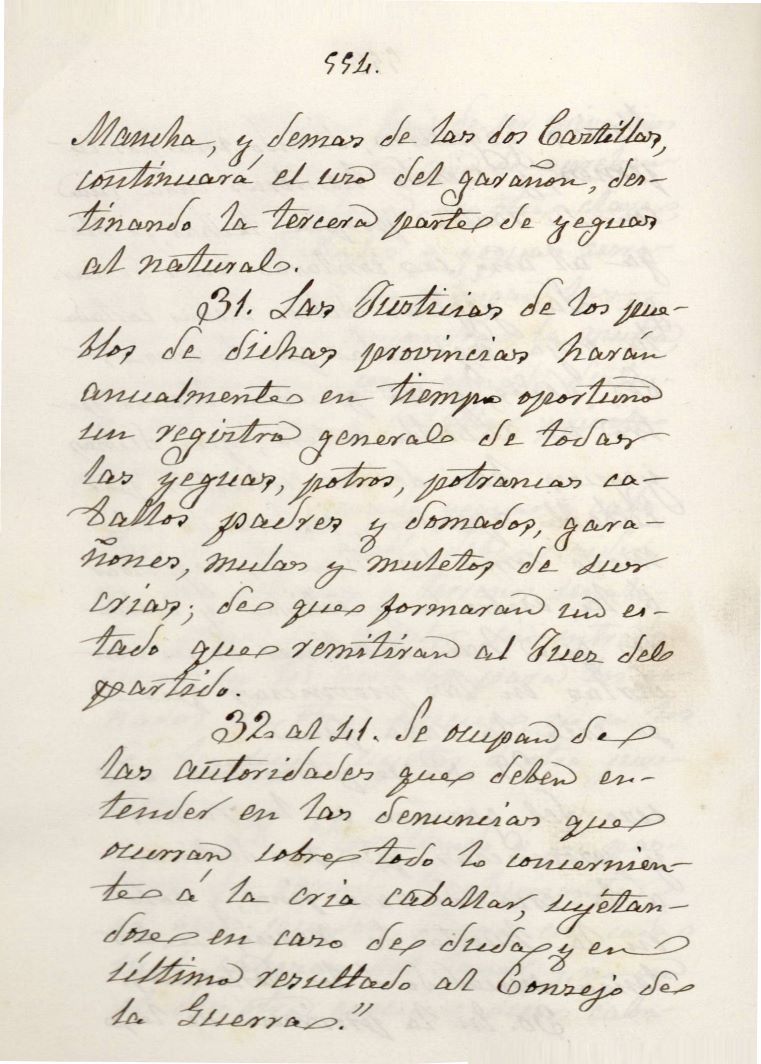 554.
Mancha, y demas de las dos Castillas,
continuará el uso del garañon, des-
tinando la tercera parte de yeguas
al natural.
31. Las Justicias de los pue-
blos de dichas provincias harán
anualmente en tiempo oportuno
un registro general de todas
las yeguas, potros, potrancas ca-
ballos padres y domados, gara-
ñones, mulas y muletos de sus
crias; de que formaran un es-
tado que remitiran al Juez del
partido.
32 al 41. Se ocupan de
las autoridades que deben en-
tender en las denuncias que
ocurran sobre todo lo concernien-
te á la cria caballar, sujetan-
dose en caso de duda y en
último resultado al Consejo de
la Guerra."